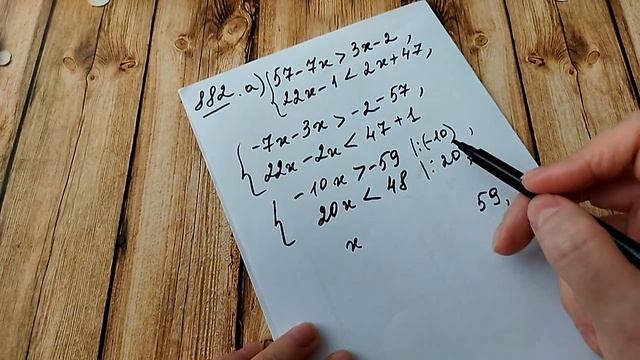 882. а) { 57-7x > 3x-2,
22x-1 < 2x+47,
{ -7x-3x > -2-57,
22x-2x < 47+1
{ -10x > -59 |:(-10),
20x < 48 |:20,
x 59,